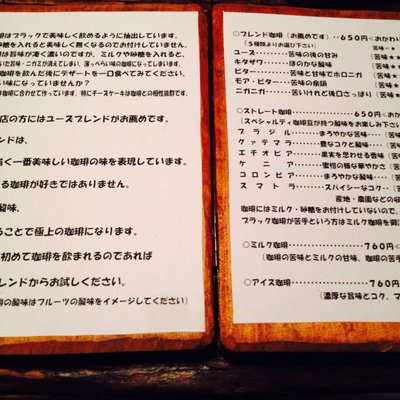 琲はブラックで美味しく飲めるように抽出しています。
を入れると美味しく無くなるのでお付けしていません。
は旨味が凄く濃いのですが、ミルクや砂糖を入れると、
い旨味：ニガミが消えてしまい、薄っぺらい味になってしまいます。
琲を飲んだ後にデザートを一口食べてみてください。
味になっていませんか？
珈琲に合わせて作っています、特にチーズケーキとの相性抜群です。
店の方にはユースブレンドがお薦めです。
ンドは、
く一番美味しい珈琲の味を表現しています。
る珈琲が好きではありません。
酸味、
ることで極上の珈琲になります。
初めて珈琲を飲まれるのであれば
レンドからお試しください。
の酸味はフルーツの酸味をイメージしてください）
○ブレンド珈琲（お薦めです）・・650円（おかわり
（5種類よりお選び下さい）　苦味－★
ユース・・・・・・・・苦味の後の甘み　（苦味★
キタザワ・・・・・・・ほのかな酸味　（苦味★
ビター・・・・・・・・苦味と甘味でホロニガ　（苦味★
モア・ビター・・・・・苦味の余韻　（苦味★
ニガニガ・・・・・・・苦いけれど後口さっぱり（苦味★
○ストレート珈琲・・・・・・・・650円（おかわ
（スペシャルティ珈琲豆が持つ酸味をお楽しみ下さい
ブラジル・・・・・・まろやかな苦味・・・（苦
グァテマラ・・・・・豊なコクと酸味・・・（苦
エチオピア・・・・・果実を思わせる香味（苦
ケニア・・・・・・・蜜柑の様な華やかさ（苦
コロンビア・・・・・まろやかな酸味・・・（苦
スマトラ・・・・・・スパイシーなコク・・（苦
産地・農園などの収
珈琲にはミルク・砂糖をお付けしていないので、
ブラック珈琲が苦手という方はミルク珈琲を
○ミルク珈琲・・・・・・・・・・760円（
（珈琲の苦味とミルクの甘味、珈琲の苦手
○アイス珈琲・・・・・・・・・・760円
（濃厚な旨味とコク、マ